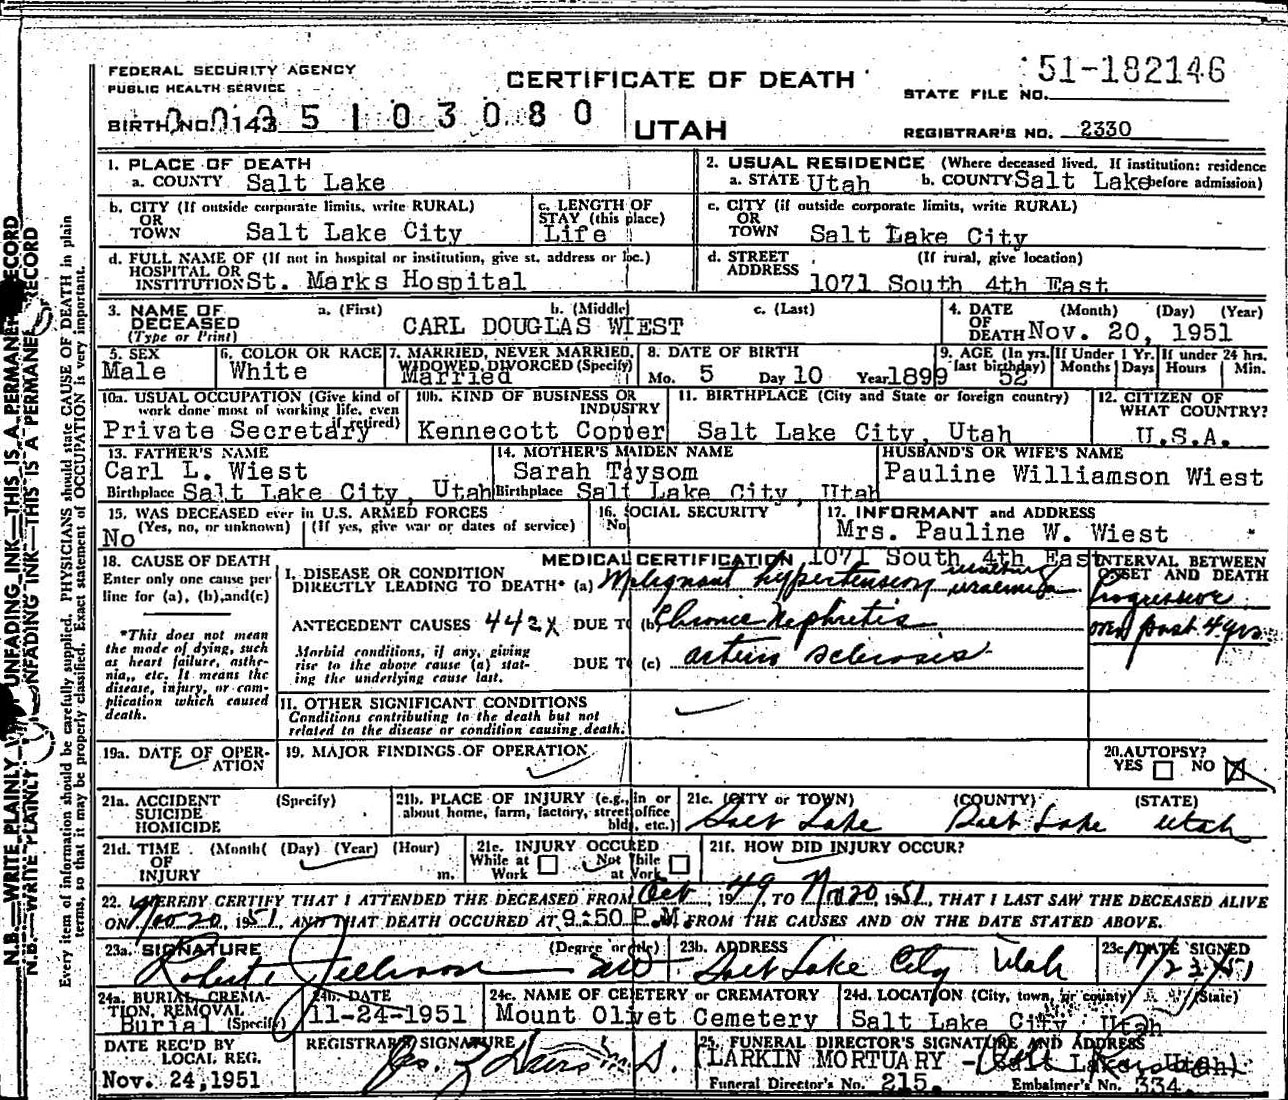 FEDERAL SECURITY AGENCY
PUBLIC HEALTH SERVICE
CERTIFICATE OF DEATH
STATE FILE NO. 51-182146
BIRTH NO. 0143 5 1 0 3 0 8 0
UTAH
REGISTRAR'S NO. 2330
1. PLACE OF DEATH
a. COUNTY Salt Lake
2. USUAL RESIDENCE (Where deceased lived. If institution: residence before admission)
a. STATE Utah b. COUNTY Salt Lake
b. CITY (If outside corporate limits, write RURAL) OR TOWN Salt Lake City
c. LENGTH OF STAY (this place) Life
c. CITY (if outside corporate limits, write RURAL) OR TOWN Salt Lake City
d. FULL NAME OF (If not in hospital or institution, give st. address or loc.) HOSPITAL OR INSTITUTION St. Marks Hospital
d. STREET ADDRESS (If rural, give location) 1071 South 4th East
3. NAME OF DECEASED (Type or Print) a. (First) b. (Middle) c. (Last)
CARL DOUGLAS WIEST
4. DATE OF DEATH (Month) (Day) (Year) Nov. 20, 1951
5. SEX Male
6. COLOR OR RACE White
7. MARRIED, NEVER MARRIED, WIDOWED, DIVORCED (Specify) Married
8. DATE OF BIRTH Mo. 5 Day 10 Year 1899
9. AGE (In yrs. last birthday) 52
If Under 1 Yr. Months Days
If under 24 hrs. Hours Min.
10a. USUAL OCCUPATION (Give kind of work done most of working life, even if retired) Private Secretary
10b. KIND OF BUSINESS OR INDUSTRY Kennecott Copper
11. BIRTHPLACE (City and State or foreign country) Salt Lake City, Utah
12. CITIZEN OF WHAT COUNTRY? U.S.A.
13. FATHER'S NAME Carl L. Wiest
Birthplace Salt Lake City, Utah
14. MOTHER'S MAIDEN NAME Sarah Taysom
Birthplace Salt Lake City, Utah
HUSBAND'S OR WIFE'S NAME Pauline Williamson Wiest
15. WAS DECEASED ever in U.S. ARMED FORCES
No (Yes, no, or unknown) (If yes, give war or dates of service)
16. SOCIAL SECURITY No
17. INFORMANT and ADDRESS
Mrs. Pauline W. Wiest
1071 South 4th East
18. CAUSE OF DEATH
Enter only one cause per line for (a), (b), and (c)
MEDICAL CERTIFICATION
INTERVAL BETWEEN ONSET AND DEATH
I. DISEASE OR CONDITION DIRECTLY LEADING TO DEATH* (a) Malignant hypertension resulting uraemia
Progressive
ANTECEDENT CAUSES 442X DUE TO (b) Chronic Nephritis
over past 4 yrs
Morbid conditions, if any, giving rise to the above cause (a) stating the underlying cause last.
DUE TO (c) arterio sclerosis
*This does not mean the mode of dying, such as heart failure, asthenia, etc. It means the disease, injury, or complication which caused death.
II. OTHER SIGNIFICANT CONDITIONS
Conditions contributing to the death but not related to the disease or condition causing death.
19a. DATE OF OPERATION
19. MAJOR FINDINGS OF OPERATION
20. AUTOPSY? YES NO X
21a. ACCIDENT SUICIDE HOMICIDE (Specify)
21b. PLACE OF INJURY (e.g., in or about home, farm, factory, street, office bldg, etc.)
21c. (CITY or TOWN) (COUNTY) (STATE)
Salt Lake Salt Lake Utah
21d. TIME OF INJURY (Month( (Day) (Year) (Hour) m.
21e. INJURY OCCURED While at Work Not While at Work
21f. HOW DID INJURY OCCUR?
22. I HEREBY CERTIFY THAT I ATTENDED THE DECEASED FROM Oct, 1949, TO Nov 20, 1951, THAT I LAST SAW THE DECEASED ALIVE
ON Nov 20, 1951, AND THAT DEATH OCCURED AT 9:50 P.M. FROM THE CAUSES AND ON THE DATE STATED ABOVE.
23a. SIGNATURE (Degree or title)
Robert
23b. ADDRESS Salt Lake City Utah
23c. DATE SIGNED 11/23/51
24a. BURIAL, CREMATION, REMOVAL (Specify) Burial
24b. DATE 11-24-1951
24c. NAME OF CEMETERY or CREMATORY Mount Olivet Cemetery
24d. LOCATION (City, town, or county) (State) Salt Lake City, Utah
DATE REC'D BY LOCAL REG. Nov. 24, 1951
REGISTRAR'S SIGNATURE
25. FUNERAL DIRECTOR'S SIGNATURE AND ADDRESS
LARKIN MORTUARY - Salt Lake Utah
Funeral Director's No. 215. Embalmer's No. 334
N.B.—WRITE PLAINLY WITH UNFADING INK—THIS IS A PERMANENT RECORD
Every item of information should be carefully supplied. PHYSICIANS should state CAUSE OF DEATH in plain terms, so that it may be properly classified. Exact statement of OCCUPATION is very important.